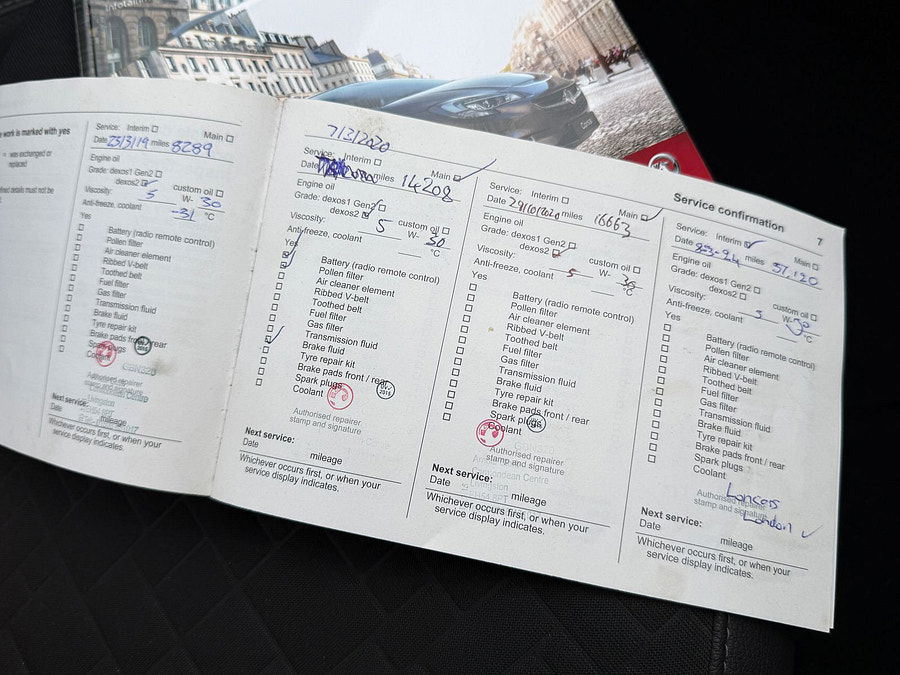 Service confirmation
7
e work is marked with yes
= was exchanged or
replaced
Service: Interim
Main
Date 23/3/19 miles 8289
Engine oil
Grade: dexos1 Gen2
dexos2
custom oil
Viscosity: 5 W- 30
Anti-freeze, coolant -31 °C
Yes
Battery (radio remote control)
Pollen filter
Air cleaner element
Ribbed V-belt
Toothed belt
Fuel filter
Gas filter
Transmission fluid
Brake fluid
Tyre repair kit
Brake pads front / rear
Spark plugs
Authorised repairer
stamp and signature
Next service:
Date
mileage
Whichever occurs first, or when your
service display indicates.
7/3/2020
Service: Interim
Main
Date miles 14208
Engine oil
Grade: dexos1 Gen2
dexos2
custom oil
Viscosity: 5 W- 30
Anti-freeze, coolant °C
Yes
Battery (radio remote control)
Pollen filter
Air cleaner element
Ribbed V-belt
Toothed belt
Fuel filter
Gas filter
Transmission fluid
Brake fluid
Tyre repair kit
Brake pads front / rear
Spark plugs
Coolant
Authorised repairer
stamp and signature
Next service:
Date
mileage
Whichever occurs first, or when your
service display indicates.
Service: Interim
Main
Date 29/10/2020 miles 16663
Engine oil
Grade: dexos1 Gen2
dexos2
custom oil
Viscosity: 5 W- 30
Anti-freeze, coolant °C
Yes
Battery (radio remote control)
Pollen filter
Air cleaner element
Ribbed V-belt
Toothed belt
Fuel filter
Gas filter
Transmission fluid
Brake fluid
Tyre repair kit
Brake pads front / rear
Spark plugs
Coolant
Authorised repairer
stamp and signature
Next service:
Date
mileage
Whichever occurs first, or when your
service display indicates.
Service: Interim
Main
Date miles 57,120
Engine oil
Grade: dexos1 Gen2
dexos2
custom oil
Viscosity: 5 W- 30
Anti-freeze, coolant °C
Yes
Battery (radio remote control)
Pollen filter
Air cleaner element
Ribbed V-belt
Toothed belt
Fuel filter
Gas filter
Transmission fluid
Brake fluid
Tyre repair kit
Brake pads front / rear
Spark plugs
Coolant
Authorised repairer
stamp and signature
London
Next service:
Date
mileage
Whichever occurs first, or when your
service display indicates.